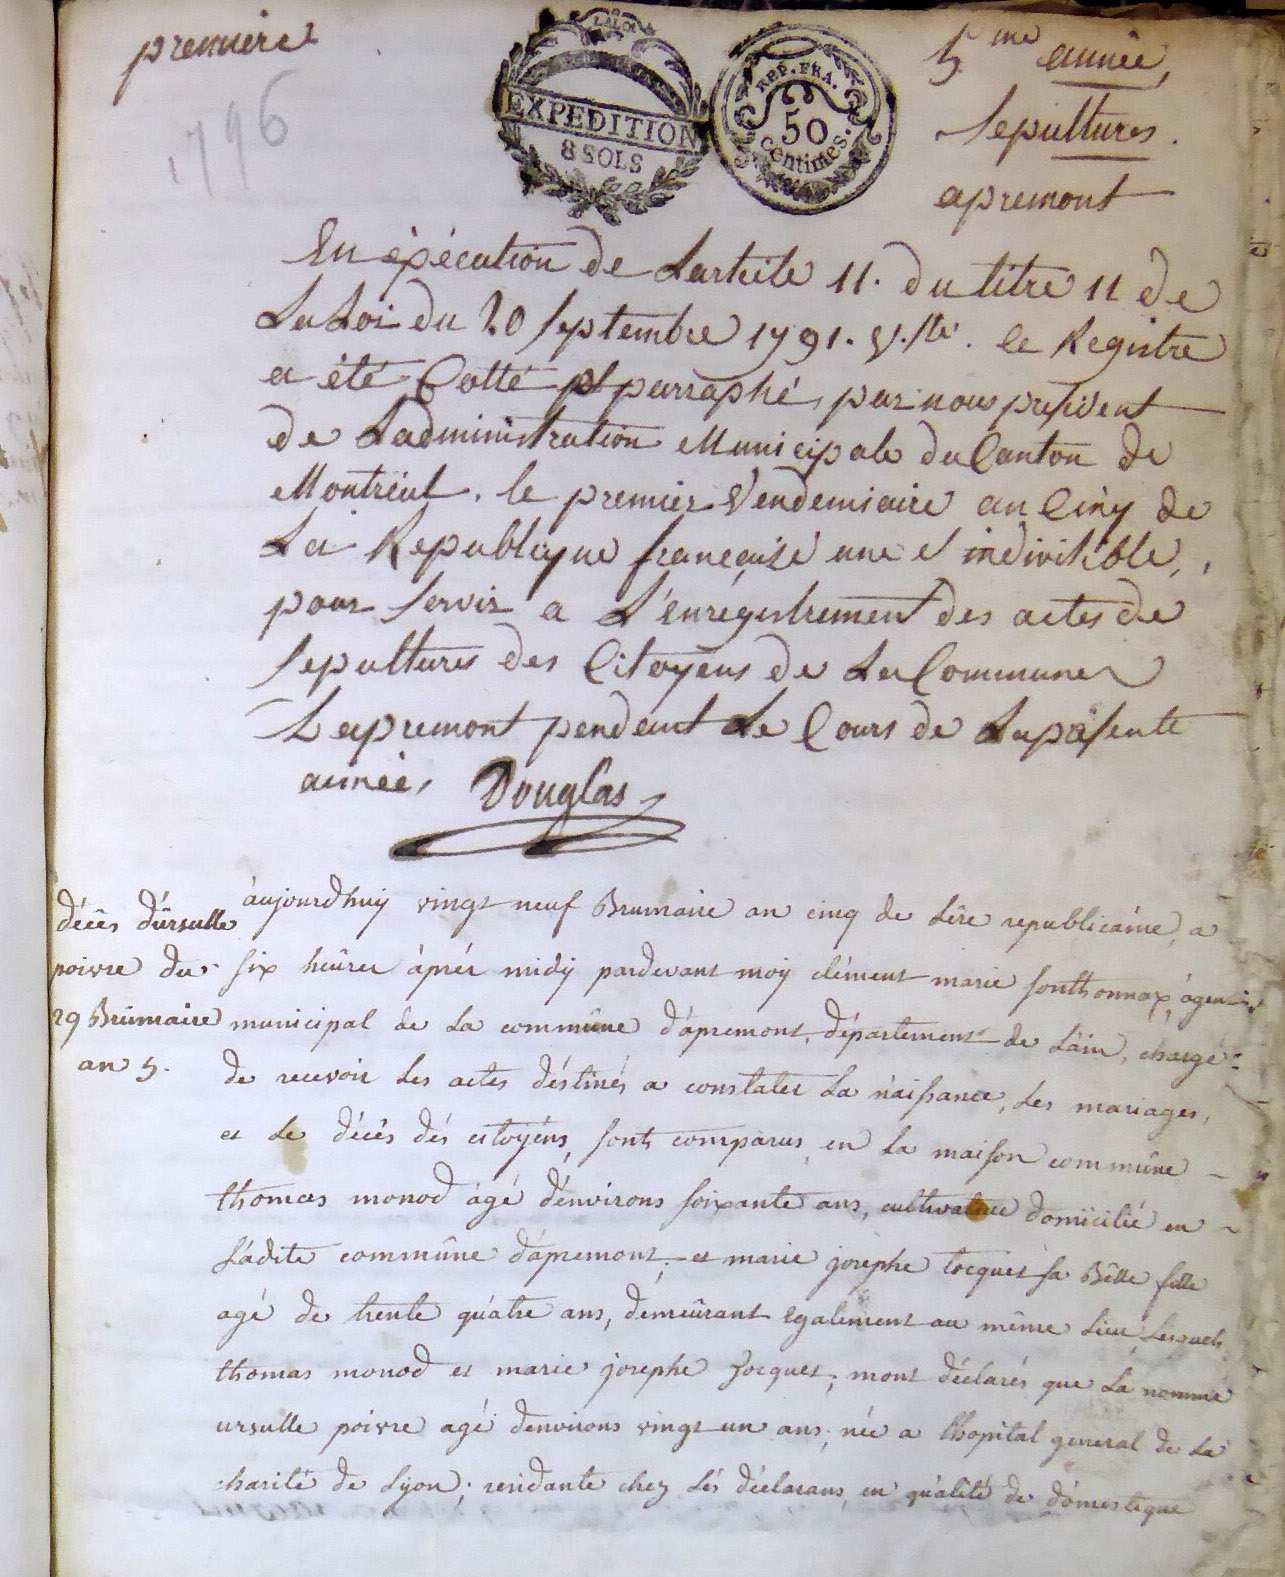 premiere
1796
LA LOI
EXPEDITION
8 SOLS
REP. FRA.
50
centimes.
5.me année,
sepultures.
apremont
En éxécution de Larticle 11. du titre 11 de
La Loi du 20 septembre 1791. v. ste. le Registre
a été Cotté et parraphé, par nous president
de Ladministration Municipale du Canton de
Montréal. le premier Vendemiaire an Cinq de
La Republique française une et indivisible,
pour servir a L'enregistrement des actes de
sepultures des Citoyens de La Commune
Dapremont pendant Le Cours de La présente
année, Douglas
décês dûrsulle
poivre du
29 Brumaire
an 5.
aujourdhuy vingt neuf Brumaire an cinq de Lêre republicaine, a
six heûres àprés midy pardevant moy clément marie sonthonnax, ágent
municipal de La commûne d'apremont, département de Láin, chargé
de recevoir Les actes déstinés a constater La náissance, Les mariages,
et Le décês dés citoyéns, sonts comparus, en La maison commûne
thomas monod agé d'environs soixante ans, cultivateur domicilié en
Ladite commûne d'apremont; et marie josephe Jocquet sa Bêlle fille
agé de trente quátre ans, demeûrant Egalement au même Lieu, Lesquels
thomas monod et marie josephe Jocquet; mont déclarés que La nommé
ursulle poivre agé denvirons vingt un ans; née a Lhopital general de La
charité de Lyon; residante chez Lés déclarans, en quálité de dómestique